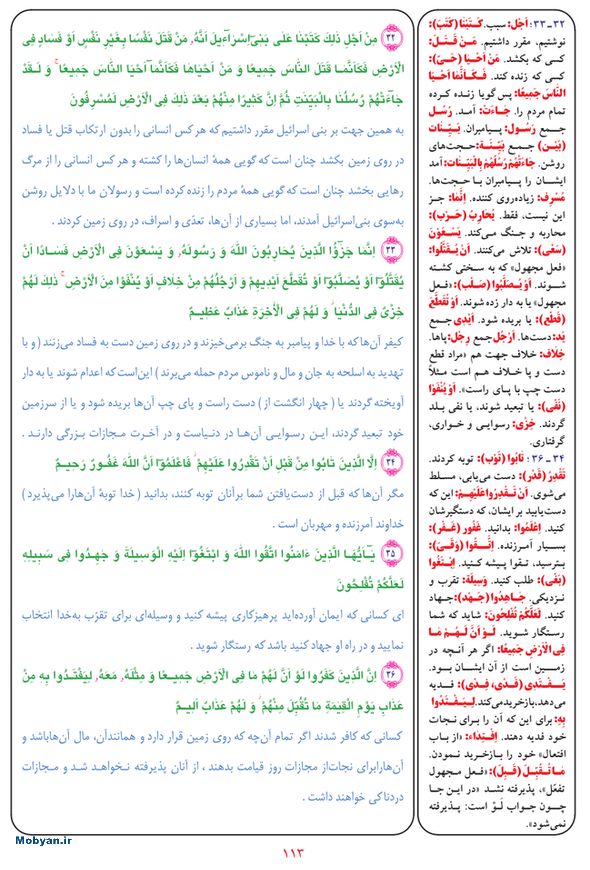 ۳۲ مِنْ اَجْلِ ذٰلِكَ كَتَبْنَا عَلٰی بَنٖی اِسْرَاءٖیلَ اَنَّهُ مَنْ قَتَلَ نَفْسًا بِغَیْرِ نَفْسٍ اَوْ فَسَادٍ فِی
الْاَرْضِ فَكَاَنَّمَا قَتَلَ النَّاسَ جَمٖیعًا وَ مَنْ اَحْیَاهَا فَكَاَنَّمَا اَحْیَا النَّاسَ جَمٖیعًا ۚ وَ لَقَدْ
جَاءَتْهُمْ رُسُلُنَا بِالْبَیِّنٰتِ ثُمَّ اِنَّ كَثٖیرًا مِنْهُمْ بَعْدَ ذٰلِكَ فِی الْاَرْضِ لَمُسْرِفُونَ
به همین جهت بر بنی اسرائیل مقرر داشتیم که هر کس انسانی را بدون ارتکاب قتل یا فساد
در روی زمین بکشد چنان است که گویی همهٔ انسان‌ها را کشته و هر کس انسانی را از مرگ
رهایی بخشد چنان است که گویی همهٔ مردم را زنده کرده است و رسولان ما با دلایل روشن
به‌سوی بنی‌اسرائیل آمدند، اما بسیاری از آن‌ها، تعدّی و اسراف، در روی زمین کردند .
۳۳ اِنَّمَا جَزٰؤُا الَّذٖینَ یُحَارِبُونَ اللّٰهَ وَ رَسُولَهُ وَ یَسْعَوْنَ فِی الْاَرْضِ فَسَادًا اَنْ
یُقَتَّلُوا اَوْ یُصَلَّبُوا اَوْ تُقَطَّعَ اَیْدٖیهِمْ وَ اَرْجُلُهُمْ مِنْ خِلَافٍ اَوْ یُنْفَوْا مِنَ الْاَرْضِ ۚ ذٰلِكَ لَهُمْ
خِزْیٌ فِی الدُّنْیَا وَ لَهُمْ فِی الْاٰخِرَةِ عَذَابٌ عَظٖیمٌ
کیفر آن‌ها که با خدا و پیامبر به جنگ برمی‌خیزند و در روی زمین دست به فساد می‌زنند ( و با
تهدید به اسلحه به جان و مال و ناموس مردم حمله می‌برند ) این‌است که اعدام شوند یا به دار
آویخته گردند یا ( چهار انگشت از ) دست راست و پای چپ آن‌ها بریده شود و یا از سرزمین
خود تبعید گردند، این رسوایی آن‌ها در دنیاست و در آخرت مجازات بزرگی دارند .
۳۴ اِلَّا الَّذٖینَ تَابُوا مِنْ قَبْلِ اَنْ تَقْدِرُوا عَلَیْهِمْ فَاعْلَمُوا اَنَّ اللّٰهَ غَفُورٌ رَحٖیمٌ
مگر آن‌ها که قبل از دست‌یافتن شما برآنان توبه کنند، بدانید ( خدا توبهٔ آن‌هارا می‌پذیرد )
خداوند آمرزنده و مهربان است .
۳۵ یَا اَیُّهَا الَّذٖینَ ءَامَنُوا اتَّقُوا اللّٰهَ وَ ابْتَغُوا اِلَیْهِ الْوَسٖیلَةَ وَ جٰهِدُوا فٖی سَبٖیلِهٖ
لَعَلَّكُمْ تُفْلِحُونَ
ای کسانی که ایمان آورده‌اید پرهیزکاری پیشه کنید و وسیله‌ای برای تقرّب به‌خدا انتخاب
نمایید و در راه او جهاد کنید باشد که رستگار شوید .
۳۶ اِنَّ الَّذٖینَ كَفَرُوا لَوْ اَنَّ لَهُمْ مَا فِی الْاَرْضِ جَمٖیعًا وَ مِثْلَهُ مَعَهُ لِیَفْتَدُوا بِهٖ مِنْ
عَذَابِ یَوْمِ الْقِیٰمَةِ مَا تُقُبِّلَ مِنْهُمْ وَ لَهُمْ عَذَابٌ اَلٖیمٌ
کسانی که کافر شدند اگر تمام آن‌چه که روی زمین قرار دارد و همانندآن، مال آن‌هاباشد و
آن‌هارابرای نجات‌از مجازات روز قیامت بدهند ، از آنان پذیرفته نخواهد شد و مجازات
دردناکی خواهند داشت .
۳۲ ـ ۳۳ : اَجْل: سبب. كَتَبْنَا (كَتَبَ):
نوشتیم، مقرر داشتیم. مَنْ قَتَلَ:
کسی که بکشد. مَنْ اَحْیَا (حَیَّ):
کسی که زنده کند. فَكَاَنَّمَا اَحْیَا
النَّاسَ جَمٖیعًا: پس گویا زنده کرده
تمام مردم را. جَاءَتْ: آمد. رُسُل
جمع رَسُول: پیامبران. بَیِّنَات
(بَیَنَ) جمع بَیِّنَة: حجت‌های
روشن. جَاءَتْهُمْ رُسُلُهُمْ بِالْبَیِّنَاتِ: آمد
ایشان را پیامبران با حجت‌ها.
مُسْرِف: زیاده‌روی کننده. اِنَّمَا: جز
این نیست، فقط. یُحَارِبُ (حَرَبَ):
محاربه و جنگ می‌کند. یَسْعَوْنَ
(سَعَیَ): تلاش می‌کنند. اَنْ یُقَتَّلُوا:
«فعل مجهول» که به سختی کشته
شوند. اَوْ یُصَلَّبُوا (صَلَبَ): «فعل
مجهول» یا به دار زده شوند. اَوْ تُقَطَّعَ
(قَطَعَ): یا بریده شود. اَیْدِی جمع
یَد: دست‌ها. اَرْجُل جمع رِجْل: پاها.
خِلَاف: خلاف جهت هم «مراد قطع
دست و پا خلاف هم است مثلاً
دست چپ با پای راست». اَوْ یُنْفَوْا
(نَفَیَ): یا تبعید شوند، یا نفی بلد
گردند. خِزْی: رسوایی و خواری،
گرفتاری.
۳۴ ـ ۳۶ : تَابُوا (تَوَبَ): توبه کردند.
تَقْدِرُ (قَدَرَ): دست می‌یابی، مسلط
می‌شوی. اَنْ تَقْدِرُوا عَلَیْهِمْ: این که
دست‌یابید بر ایشان، که دستگیرشان
کنید. اِعْلَمُوا: بدانید. غَفُور (غَفَرَ):
بسیار آمرزنده. اِتَّقُوا (وَقَیَ):
بترسید، تقوا پیشه کنید. اِبْتَغُوا
(بَغَیَ): طلب کنید. وَسٖیلَة: تقرب و
نزدیکی. جَاهِدُوا (جَهَدَ): جهاد
کنید. لَعَلَّكُمْ تُفْلِحُونَ: شاید که شما
رستگار شوید. لَوْ اَنَّ لَهُمْ مَا
فِی الْاَرْضِ جَمٖیعًا: اگر هر آنچه در
زمین است از آن ایشان بود.
یَفْتَدِی (فَدَیَ، فِدْی): فدیه
می‌دهد، بازخریدمی‌کند. لِیَفْتَدُوا
بِهٖ: برای این که آن را برای نجات
خود فدیه دهند. اِفْتِدَاء: «از باب
افتعال» خود را بازخرید نمودن.
مَا تُقُبِّلَ (قَبِلَ): «فعل مجهول
تفعّل»، پذیرفته نشد «در این جا
چون جواب لَوْ است: پذیرفته
نمی‌شود».
Mobyan.ir
۱۱۳